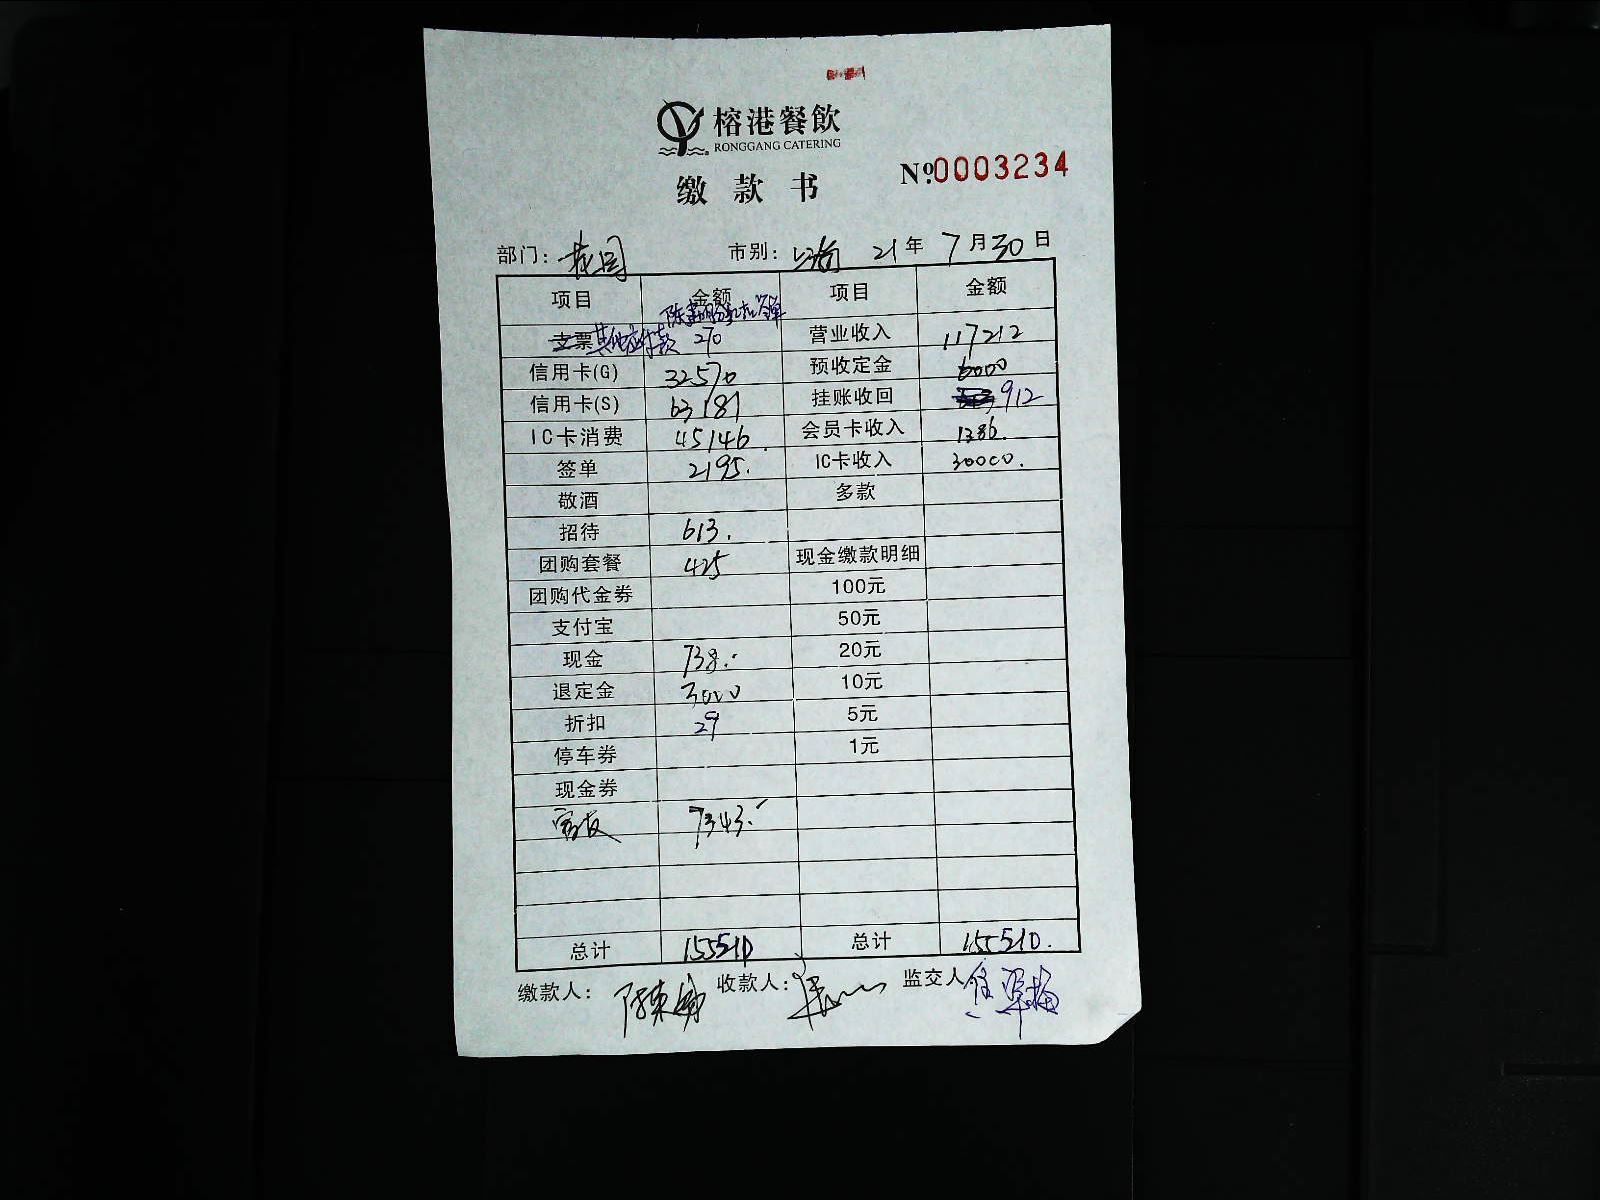 榕港餐飲
RONGGANG CATERING
缴款书
№0003234
部门: 花园 市别: 21年7月30日
项目 金额 项目 金额
支票 其他应付款 270 营业收入 117212
信用卡(G) 32570 预收定金 6000
信用卡(S) 63181 挂账收回 912
IC卡消费 45146 会员卡收入 1386.
签单 2195. IC卡收入 30000.
敬酒 多款
招待 613.
团购套餐 425 现金缴款明细
团购代金券 100元
支付宝 50元
现金 738.- 20元
退定金 3000 10元
折扣 29 5元
停车券 1元
现金券
7343.-
总计 155510 总计 155510.
缴款人: 收款人: 监交人